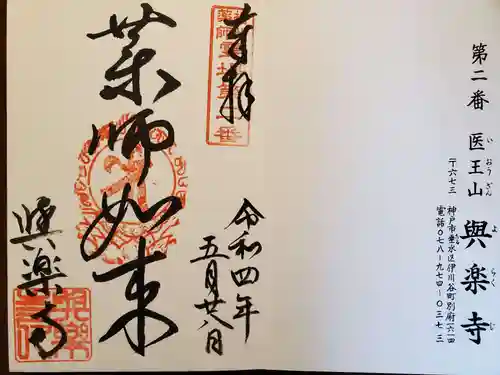 第二番 医王山 與楽寺
い おうざん よ らく じ
〒六七三 神戸市垂水区伊川谷町別府一六一四
電話〇七八-九七四-〇三七三
奉拝
令和四年
五月廿八日
薬師如来
與楽寺